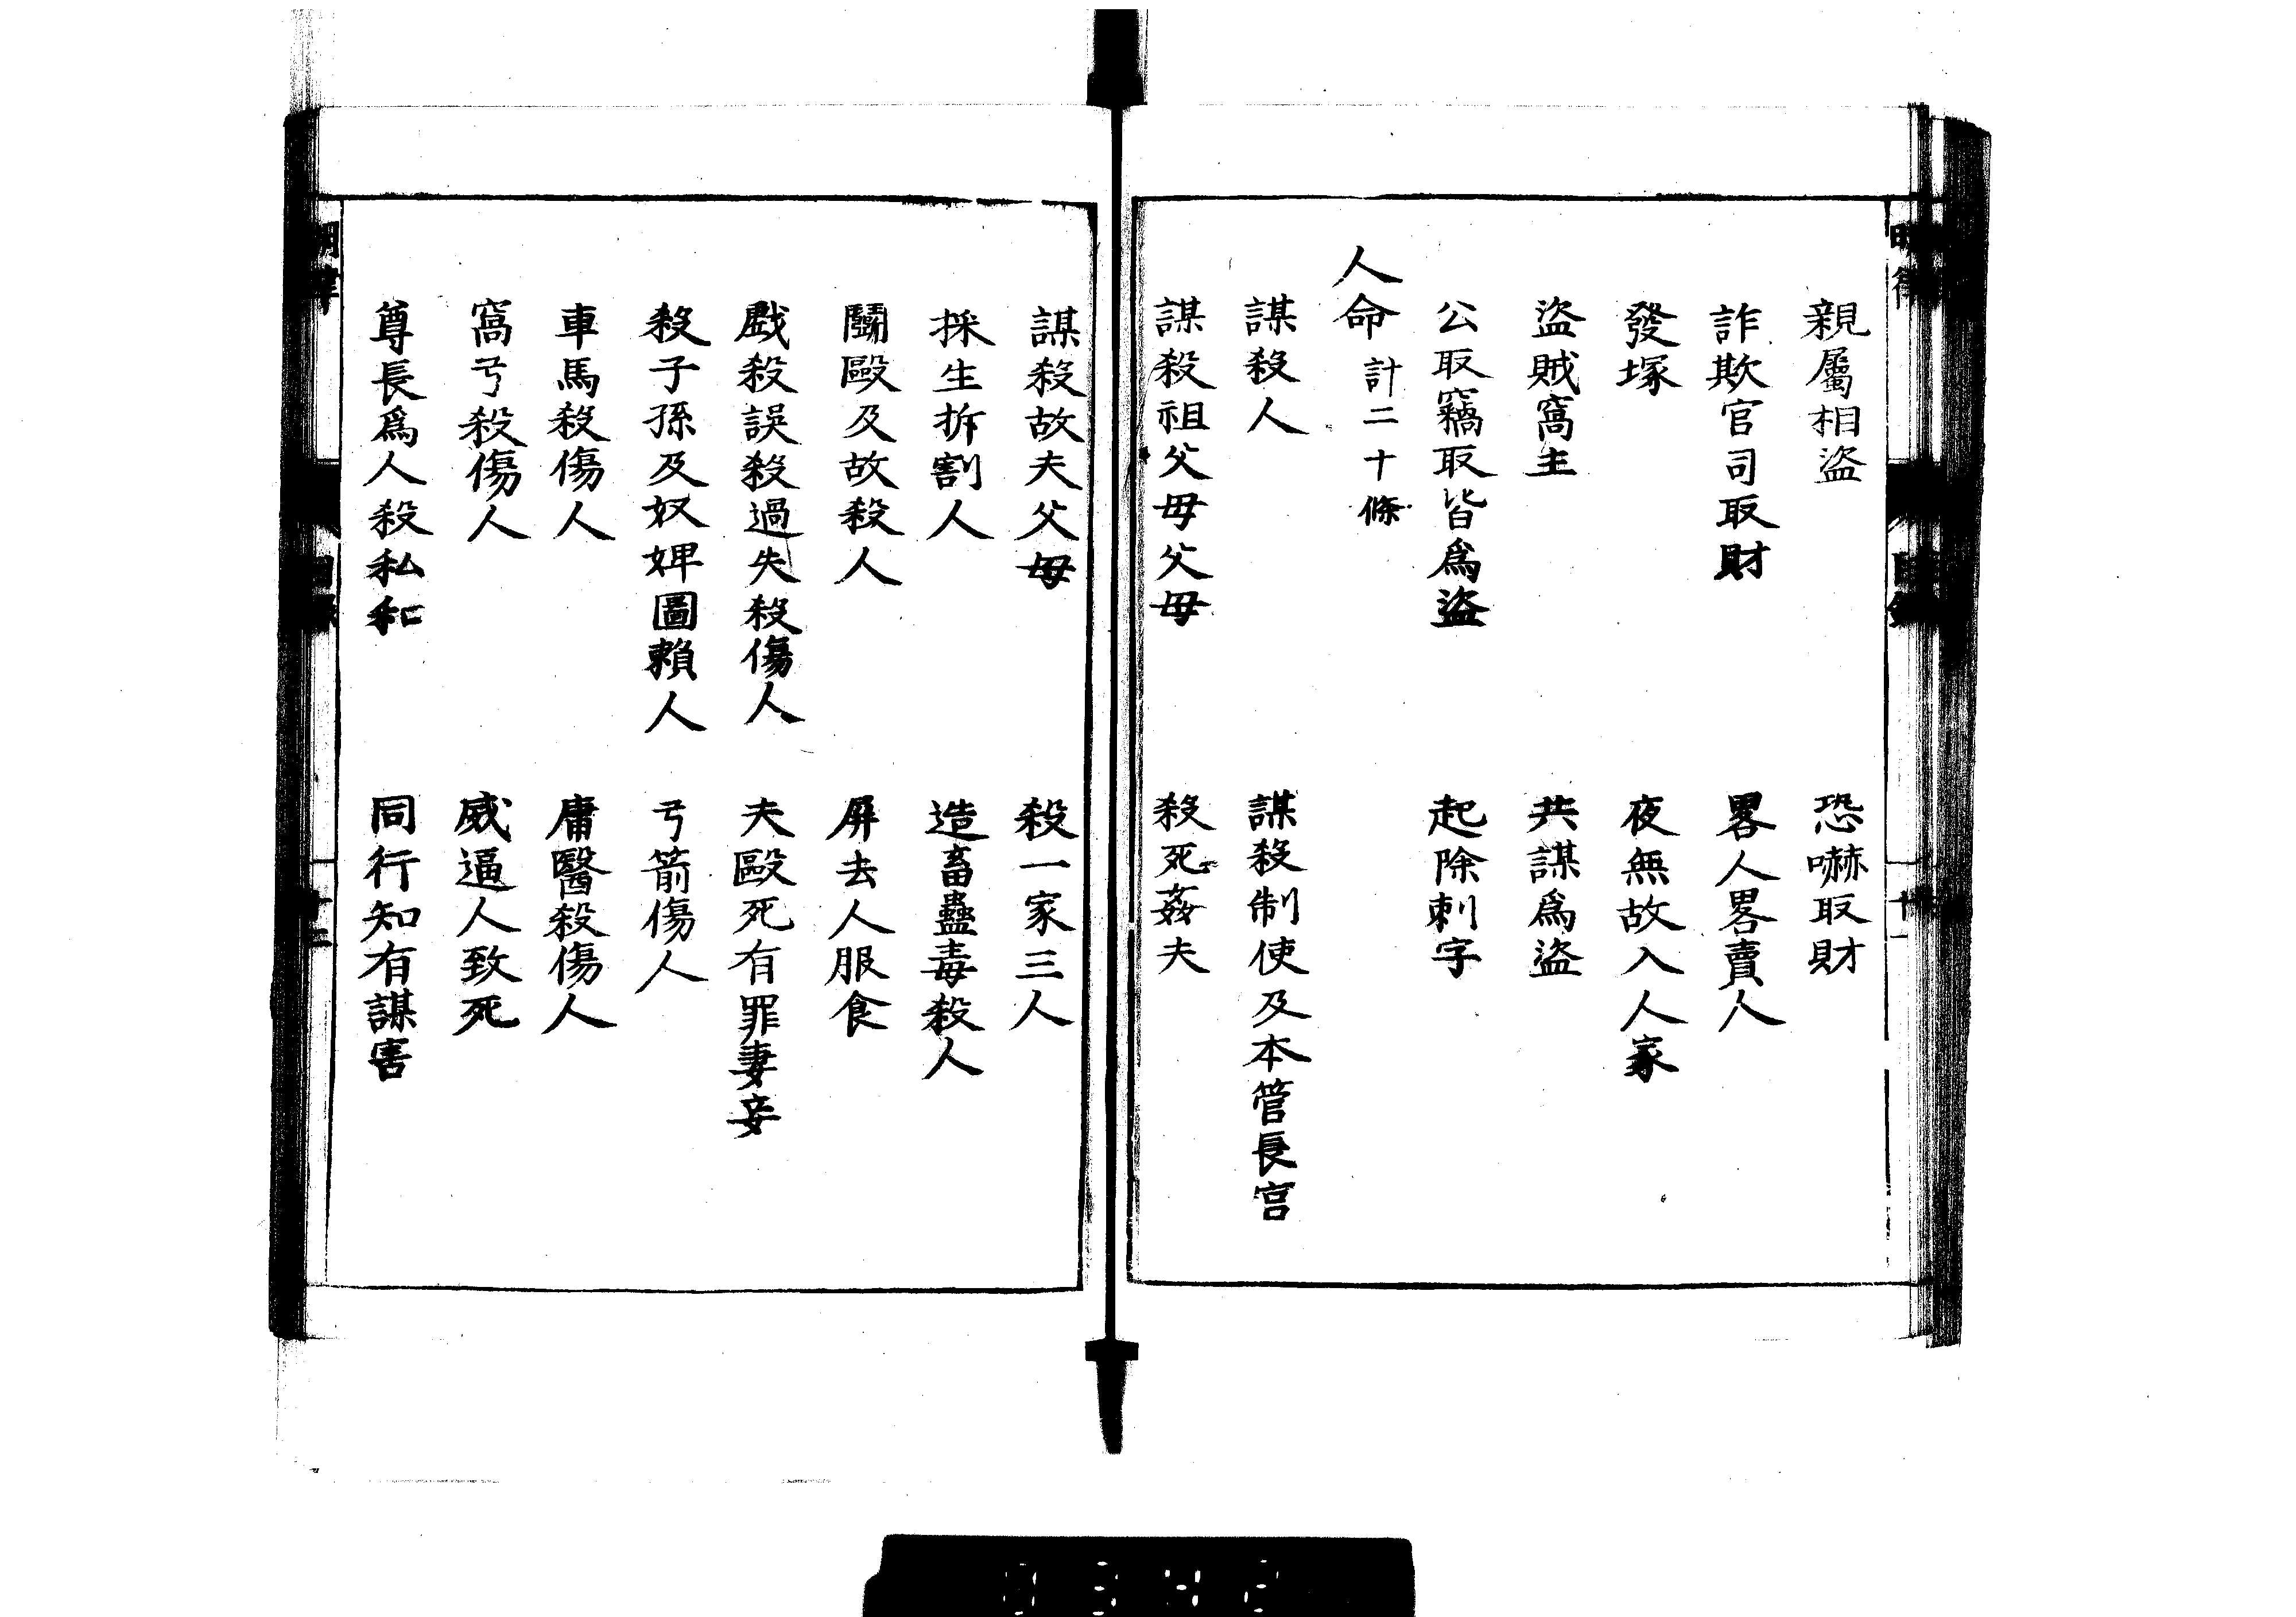 親屬相盜　恐嚇取財
詐欺官司取財　畧人畧賣人
發塚　夜無故入人家
盜賊窩主　共謀爲盜
公取竊取皆爲盜　起除刺字
人命計二十條
謀殺人　謀殺制使及本管長官
謀殺祖父母父母　殺死姦夫
謀殺故夫父母　殺一家三人
採生拆割人　造畜蠱毒殺人
鬬毆及故殺人　屏去人服食
戲殺誤殺過失殺傷人　夫毆死有罪妻妾
殺子孫及奴婢圖賴人　弓箭傷人
車馬殺傷人　庸醫殺傷人
窩弓殺傷人　威逼人致死
尊長爲人殺私和　同行知有謀害